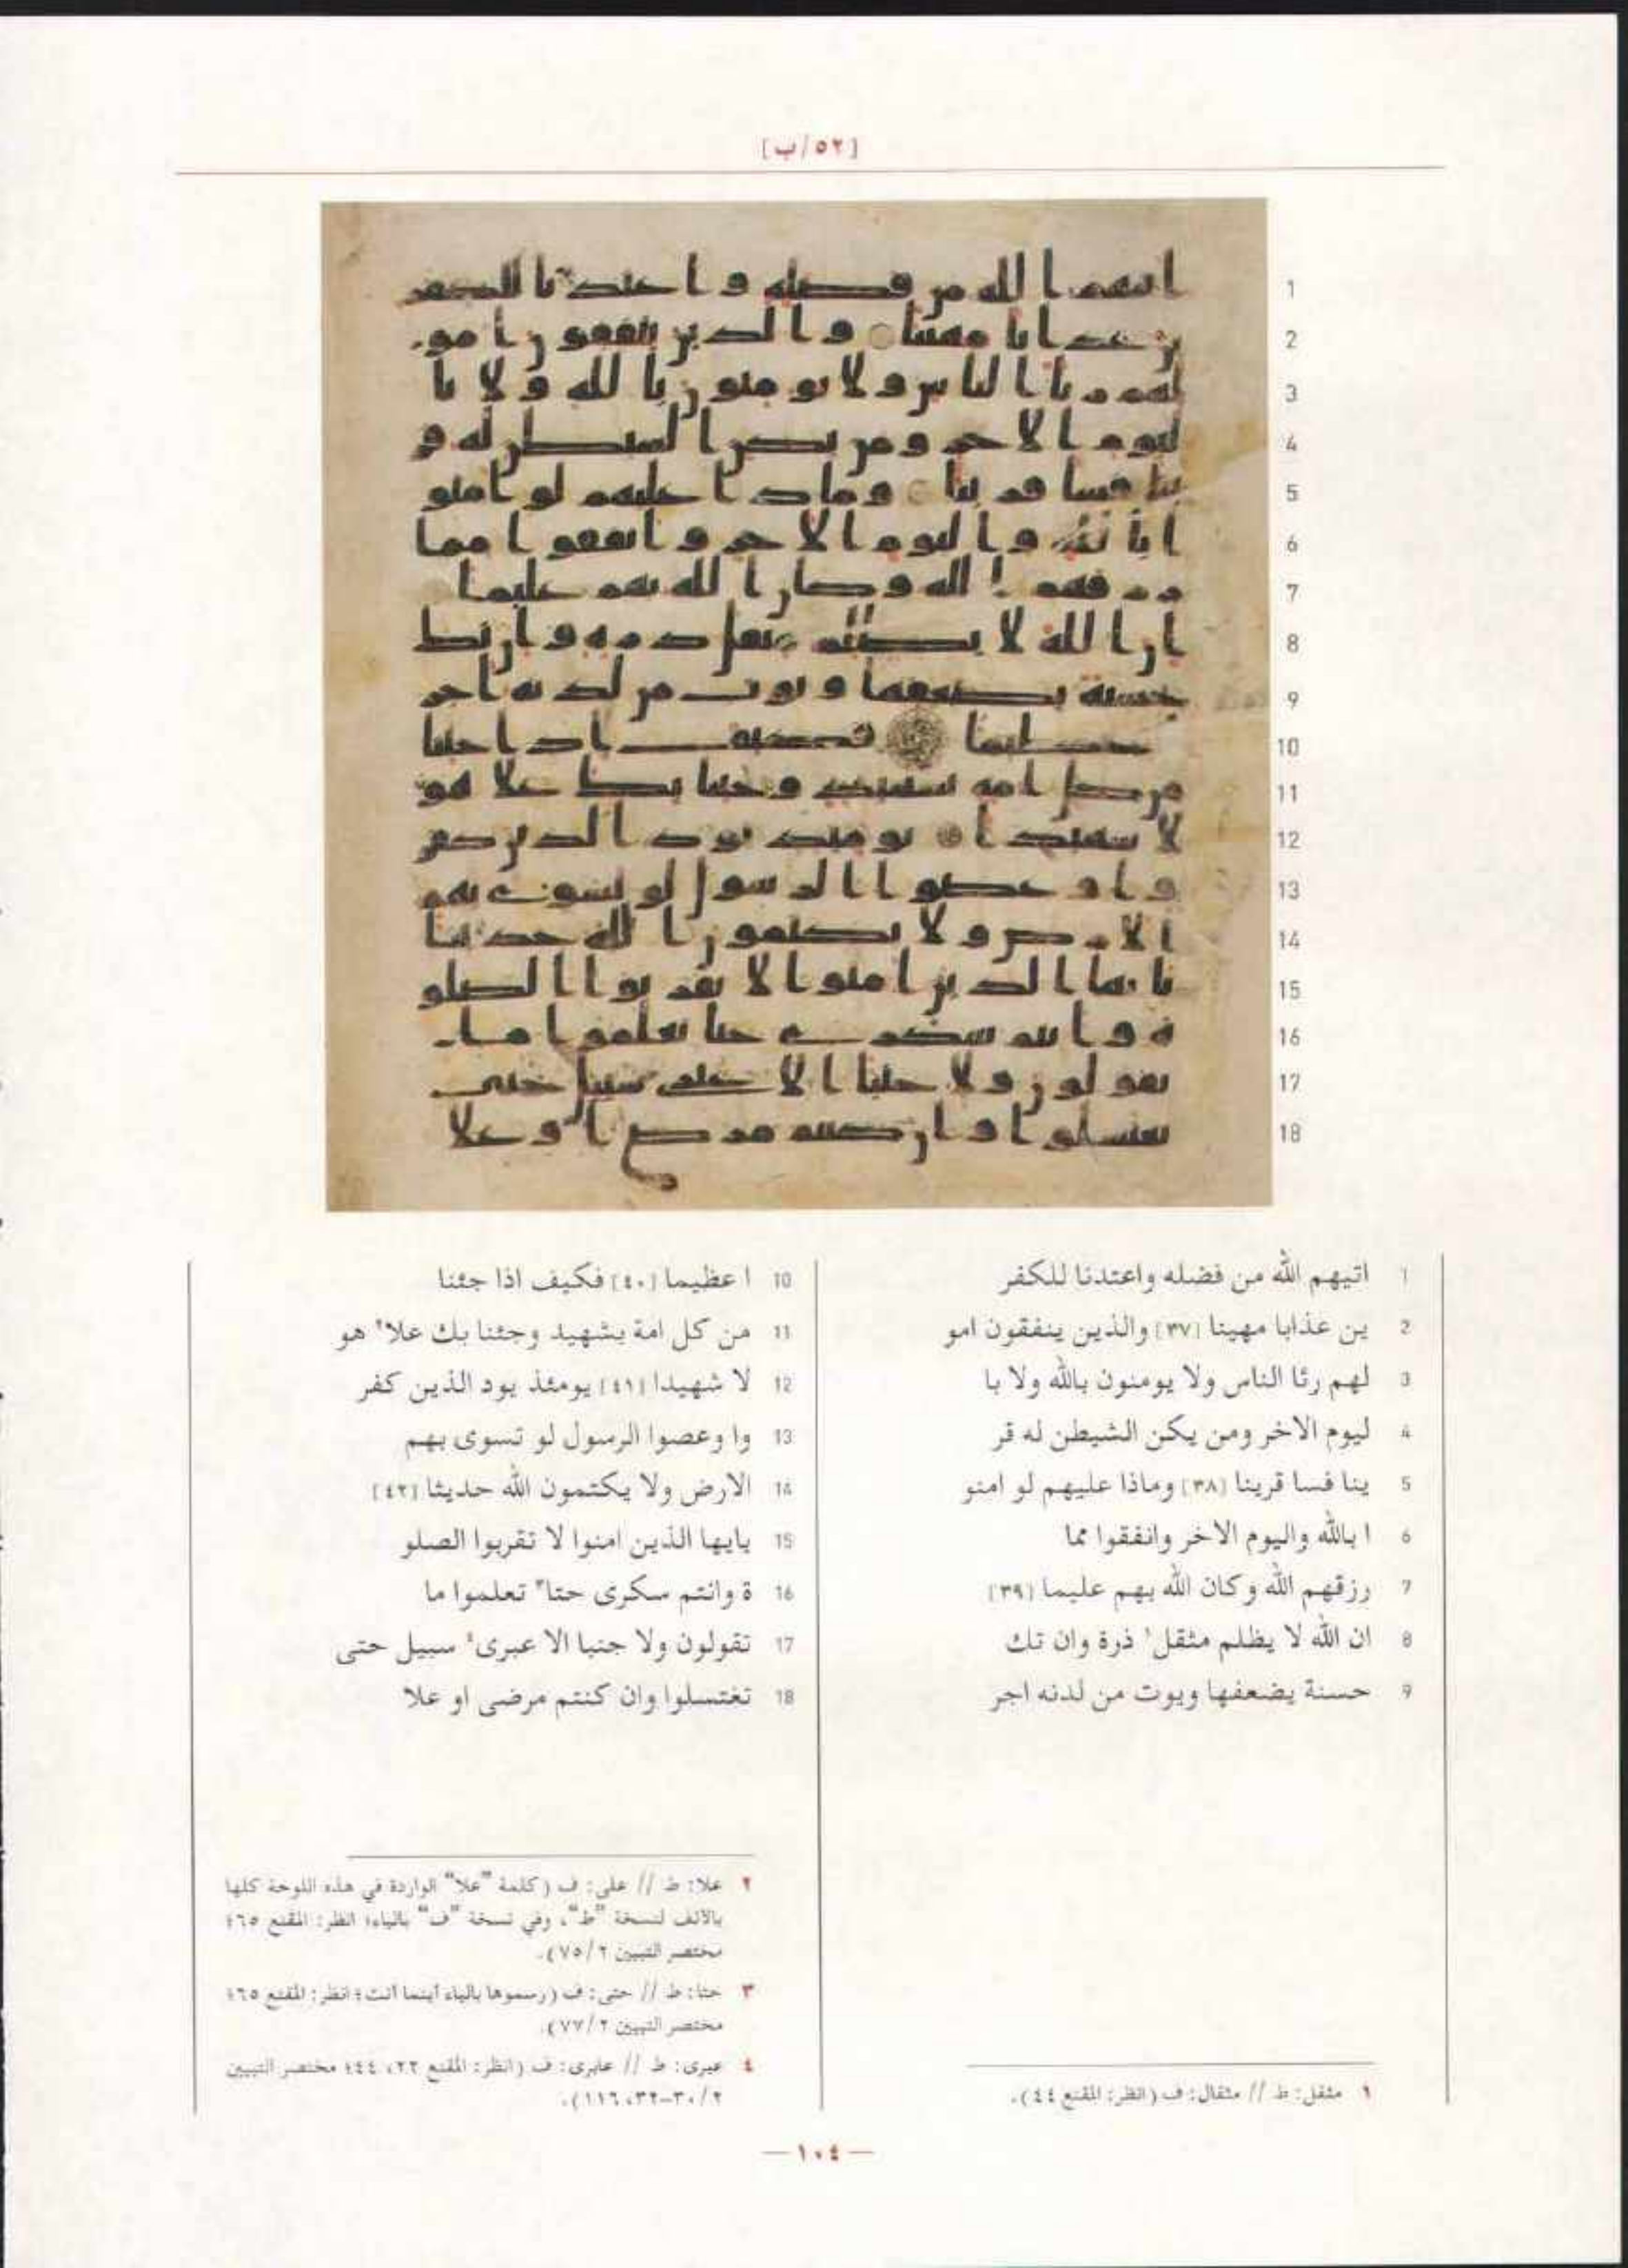 [٥٢/ب]
1 اتيهم الله من فضله واعتدنا للكفر
2 ين عذابا مهينا [٣٧] والذين ينفقون امو
3 لهم رئا الناس ولا يومنون بالله ولا با
4 ليوم الاخر ومن يكن الشيطن له قر
5 ينا فسا قرينا [٣٨] وماذا عليهم لو امنو
6 ا بالله واليوم الاخر وانفقوا مما
7 رزقهم الله وكان الله بهم عليما [٣٩]
8 ان الله لا يظلم مثقل١ ذرة وان تك
9 حسنة يضعفها ويوت من لدنه اجر
10 ا عظيما [٤٠] فكيف اذا جئنا
11 من كل امة بشهيد وجئنا بك علا٢ هو
12 لا شهيدا [٤١] يومئذ يود الذين كفر
13 وا وعصوا الرسول لو تسوى بهم
14 الارض ولا يكتمون الله حديثا [٤٢]
15 يايها الذين امنوا لا تقربوا الصلو
16 ة وانتم سكرى حتا٣ تعلموا ما
17 تقولون ولا جنبا الا عبرى٤ سبيل حتى
18 تغتسلوا وان كنتم مرضى او علا
١ مثقل: ط // مثقال: ف (انظر: المقنع ٤٤).
٢ علا: ط // على: ف (كلمة "علا" الواردة في هذه اللوحة كلها
بالألف لنسخة "ط"، وفي نسخة "ف" بالياء؛ انظر: المقنع ٦٥؛
مختصر التبيين ٧٥/٢).
٣ حتا: ط // حتى: ف (رسموها بالياء أينما أتت؛ انظر: المقنع ٦٥؛
مختصر التبيين ٧٧/٢).
٤ عبرى: ط // عابرى: ف (انظر: المقنع ٢٢، ٤٤؛ مختصر التبيين
٣٠/٢-٣٢، ١١٦).
— ١٠٤ —